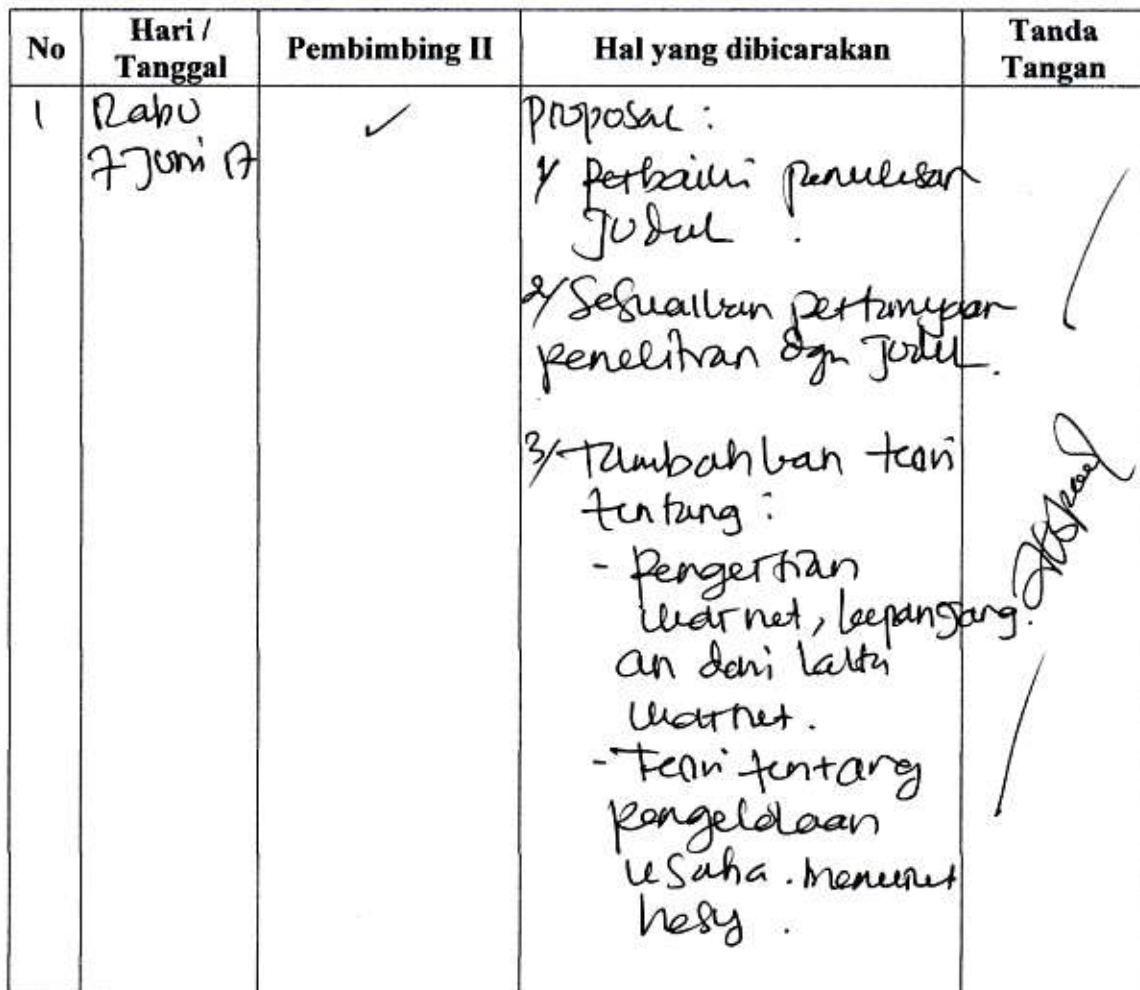 No
Hari / Tanggal
Pembimbing II
Hal yang dibicarakan
Tanda Tangan
1
Rabu
7 Juni 17
Proposal :
1/ Perbaiki penulisan
Judul .
2/ Sesuaikan pertanyaan
penelitian dgn Judul.
3/ Tambahkan teori
tentang :
- Pengertian
warnet, kepanjang
an dari kata
warnet.
- Teori tentang
pengelolaan
usaha. menurut